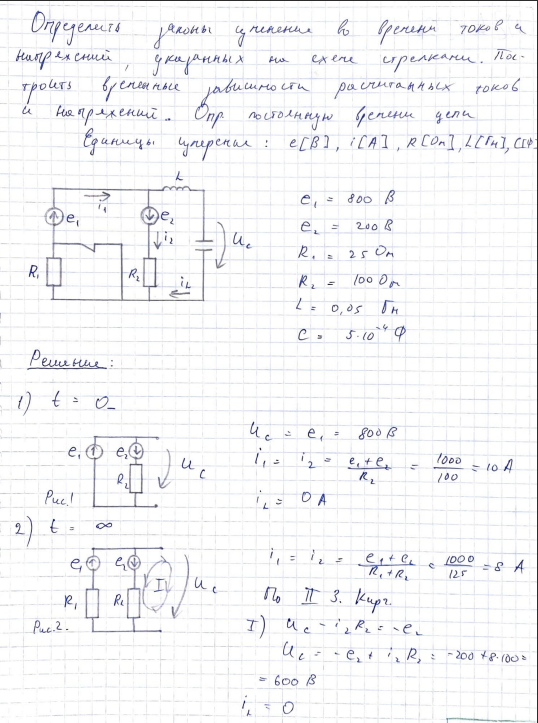 Определить законы изменения во времени токов и
напряжений, указанных на схеме стрелками. Пос-
троить временные зависимости расчитанных токов
и напряжений. Опр постоянную времени цепи
Единицы измерения: e[В], i[А], R[Ом], L[Гн], C[Ф
L
i₁
e₁
e₂
i₂
U_c
R₁
R₂
i_L
e₁ = 800 В
e₂ = 200 В
R₁ = 25 Ом
R₂ = 100 Ом
L = 0,05 Гн
C = 5·10⁻⁴ Ф
Решение:
1) t = 0_
e₁
e₂
R₂
U_c
Рис.1
U_c = e₁ = 800 В
i₁ = i₂ = (e₁+e₂)/R₂ = 1000/100 = 10 А
i_L = 0 А
2) t = ∞
e₁
e₂
R₁
R₂
I
U_c
Рис.2.
i₁ = i₂ = (e₁+e₂)/(R₁+R₂) = 1000/125 = 8 А
По II З. Кирг.
I) U_c - i₂R₂ = -e₂
U_c = -e₂ + i₂R₂ = -200 + 8·100 =
= 600 В
i_L = 0